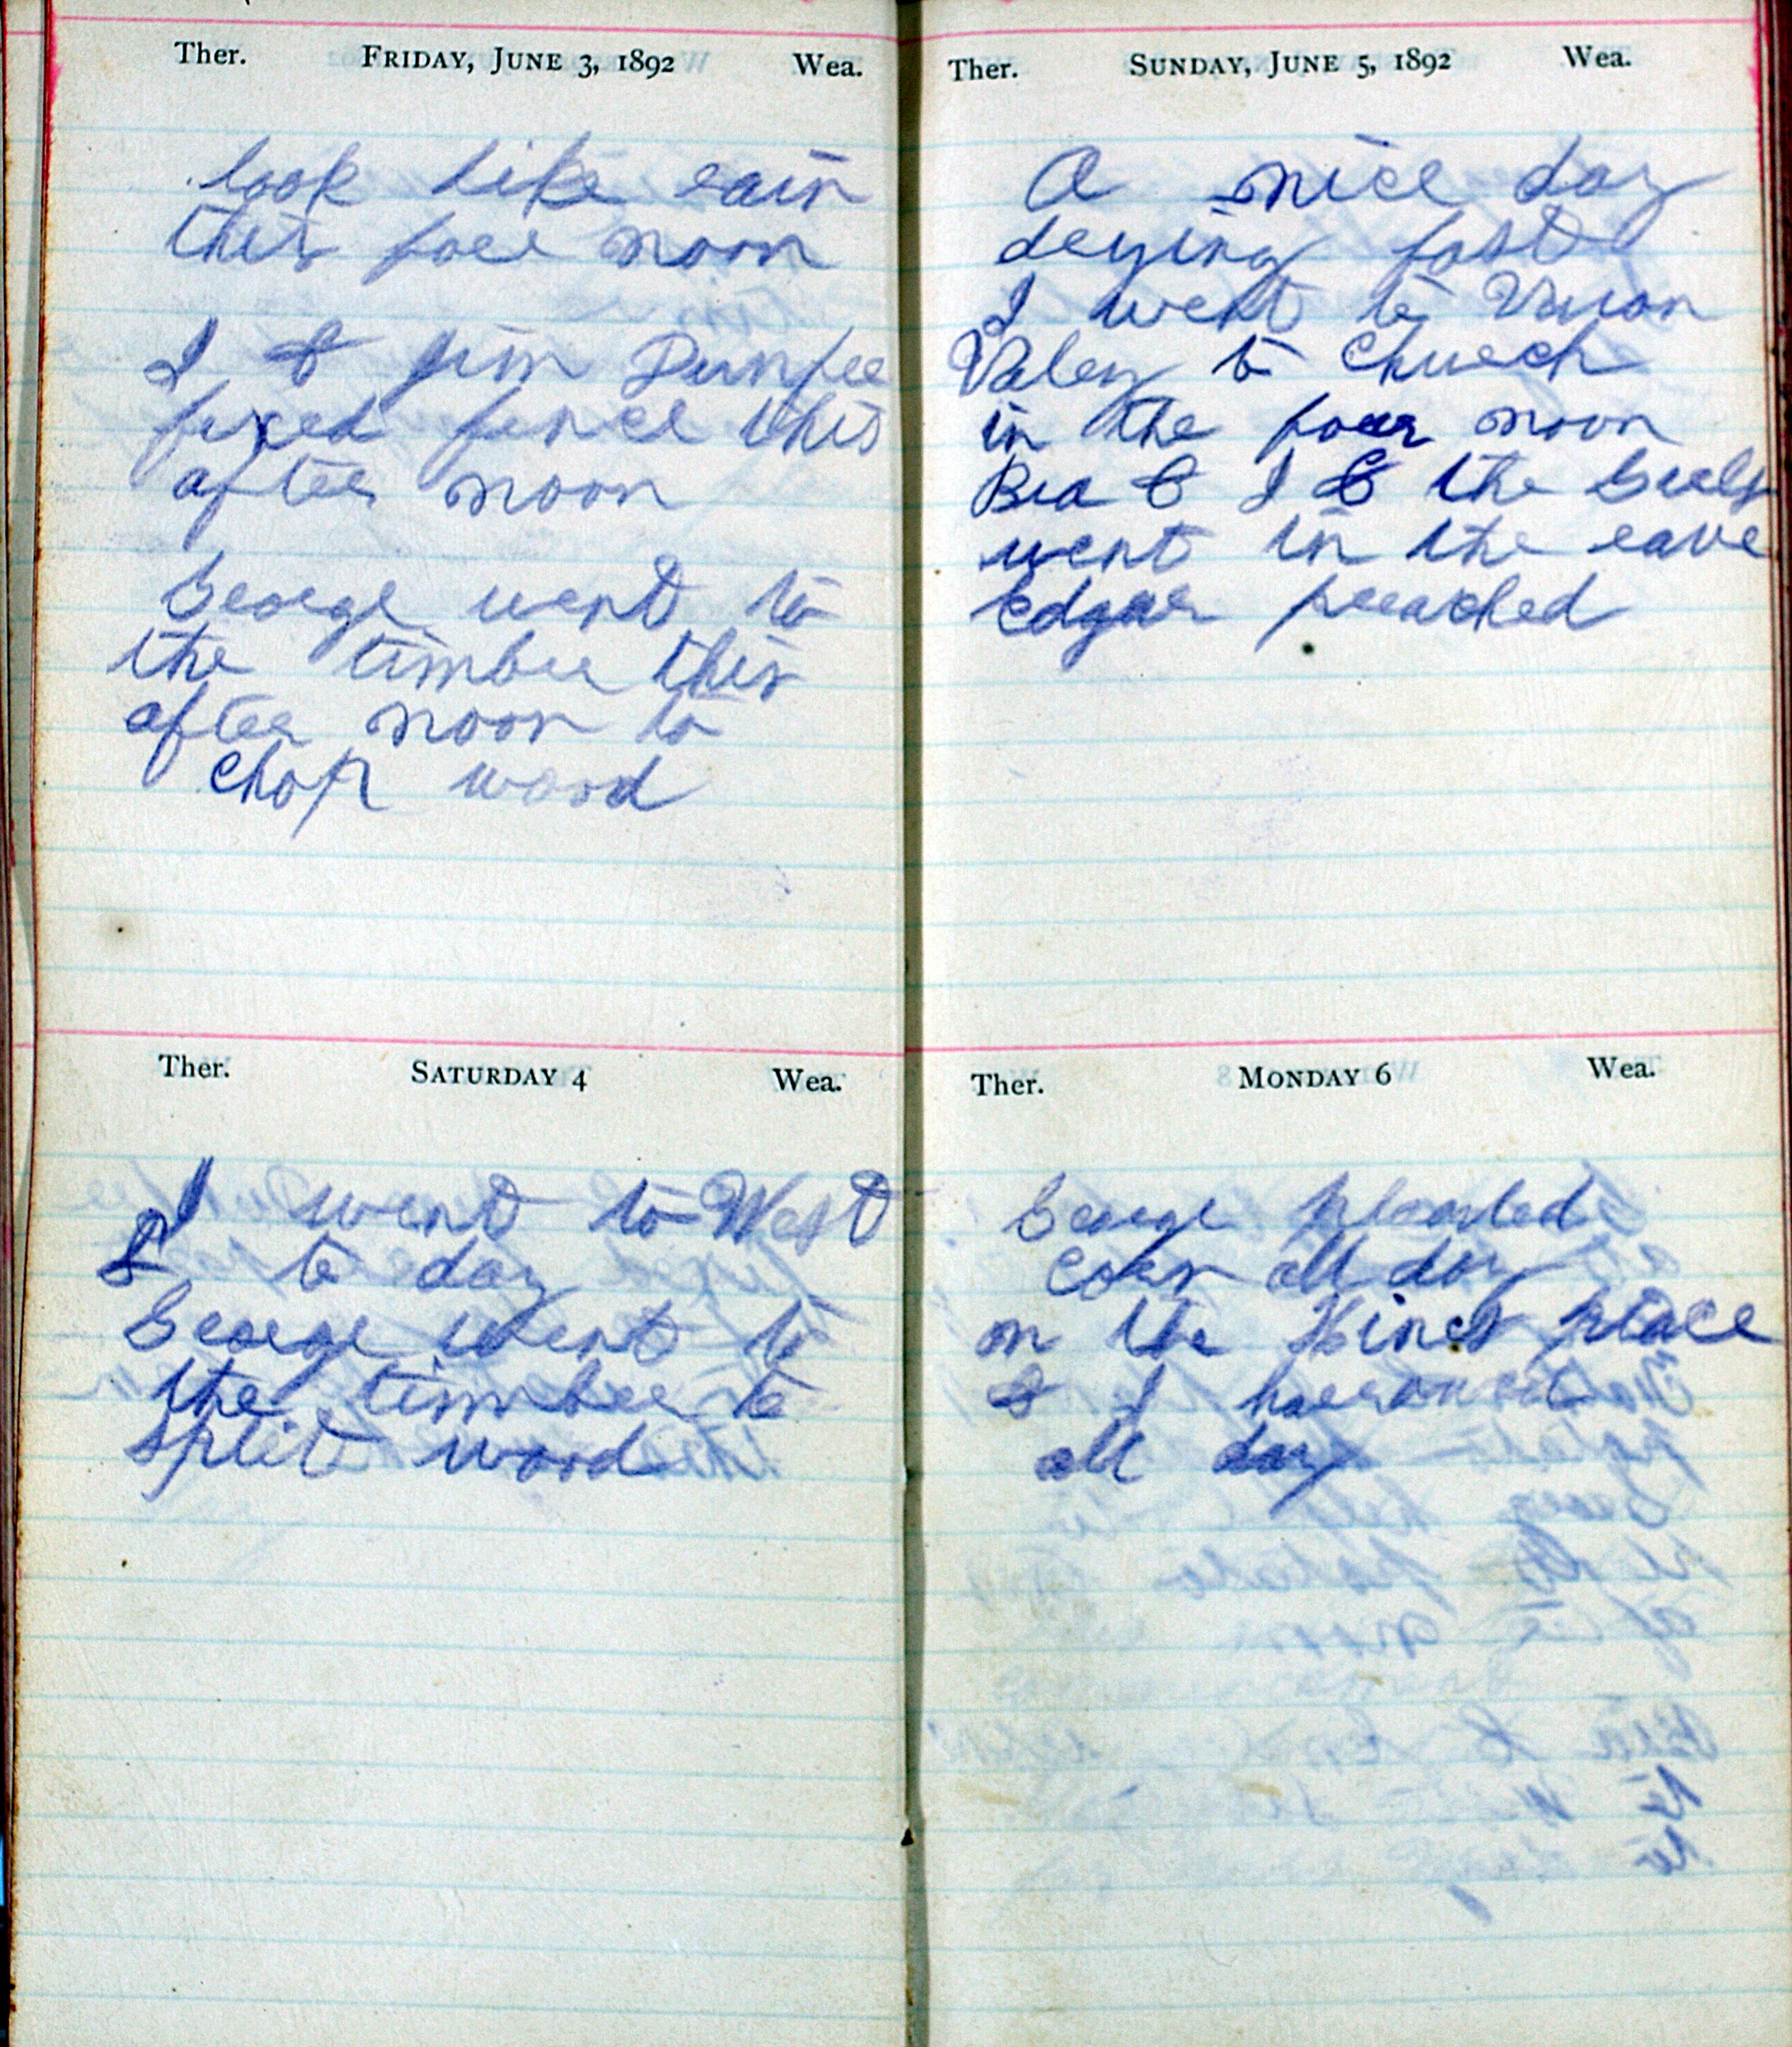 Ther. FRIDAY, JUNE 3, 1892 Wea.
look like rain
this fore noon
I & Jim Dunfee
fixed fence this
after noon
George went to
the timber this
after noon to
chop wood
Ther. SATURDAY 4 Wea.
I went to West
& to day
George went to
the timber to
split wood
Ther. SUNDAY, JUNE 5, 1892 Wea.
A nice day
drying fast
I went to
Valey to Church
in the fore noon
Bra & I & the Girls
went in the eave
Edgar preached
Ther. MONDAY 6 Wea.
George planted
Corn all day
on the Hines place
& I harrowed
all day